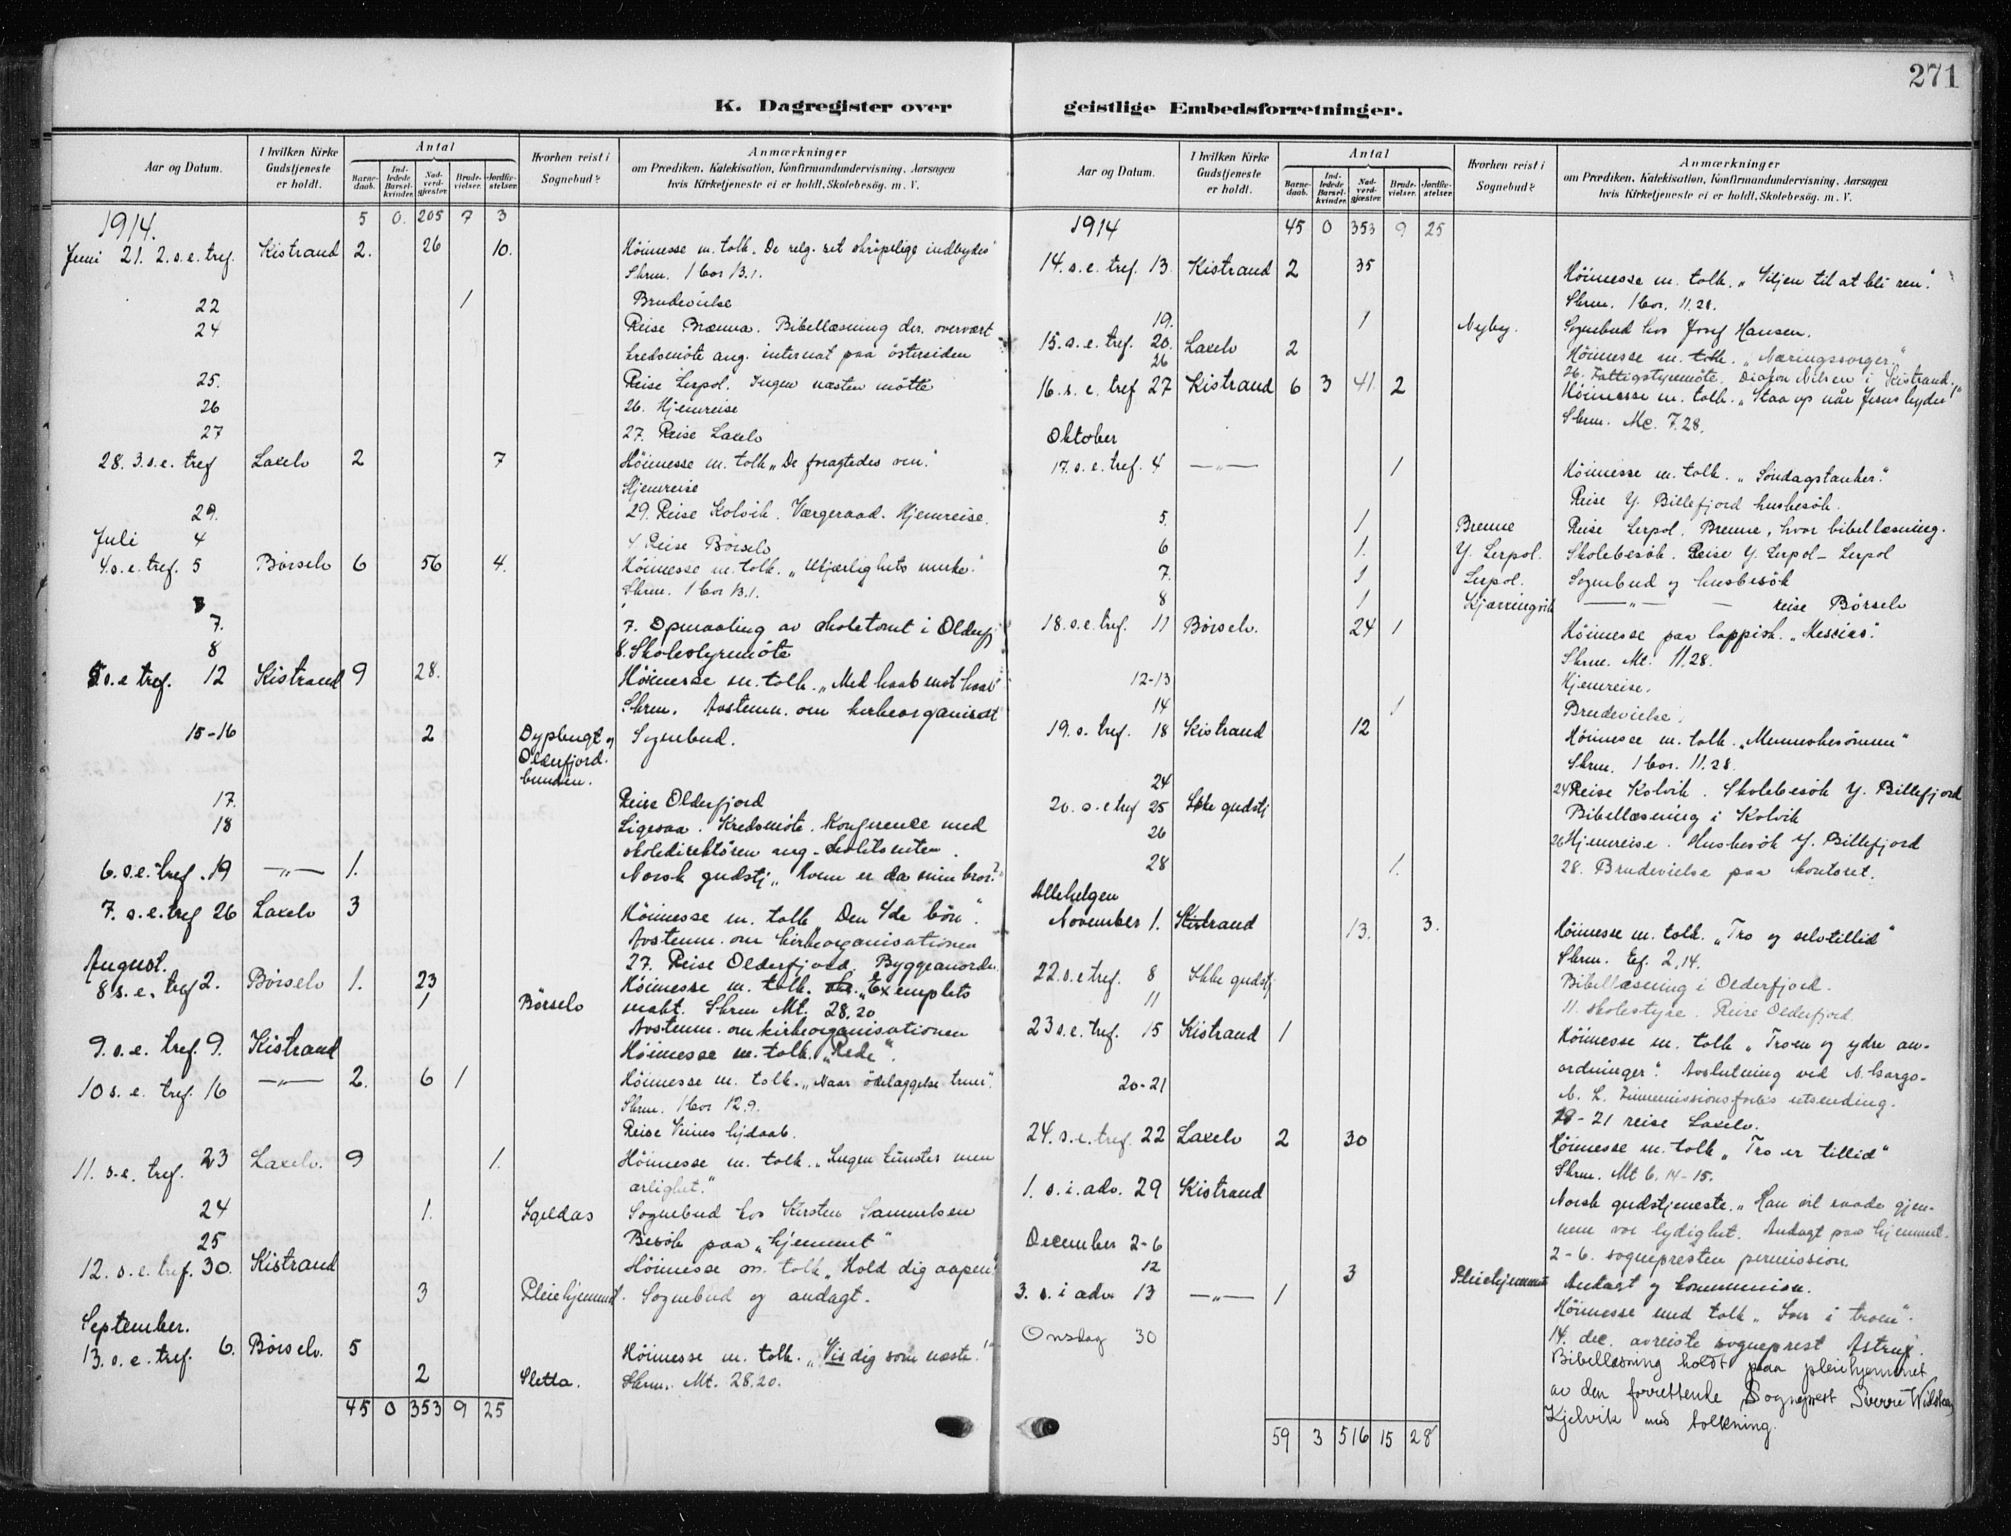 271
K. Dagregister over
geistlige Embedsforretninger.
Aar og Datum.
I hvilken Kirke Gudstjeneste er holdt.
Antal
Barnedaab.
Indledede Barselkvinder.
Nadverdgjæster.
Brudevielser.
Jordfæstelser.
Hvorhen reist i Sognebud?
Anmærkninger
om Prædiken, Katekisation, Konfirmandundervisning, Aarsagen
hvis Kirketjeneste ei er holdt, Skolebesøg. m. V.
1914. 5 0. 205 7 3
Juni 21. 2. s. e. tref. Kistrand 2. 26 10. Höimesse m. tolk. De relg. set skröpelige indbydes"
Skrm. 1 Cor 13.1.
22 1 Brudevielse
24 Reise Brænna. Bibellæsning der. overvært
kredsmöte ang. internat paa östersiden
25. Reise Lerpol. Ingen næsten mötte
26 26. Hjemreise
27 27. Reise Laxelv
28. 3. s. e. tref Laxelv 2 7 Höimesse m. tolk „De foragtedes ven."
Hjemreise
29. 29. Reise Kolvik. Værgeraad. Hjemreise.
Juli 4 4 Reise Börselv
4. s. e. tref. 5 Börselv 6 56 4. Höimesse m. tolk. „Ukjærlighets merke."
Skrm. 1 Cor 13.1.
7. 7. Opmaaling av skoletomt i Olderfj
8 8. Skolestyremöte
5 s. e tref. 12 Kistrand 9 28. Höimesse m. tolk. „Med haab mot haab"
Skrm. Avstemn. om kirkeorganisat
15-16 2 Dypbugt og Sognebud.
Olderfjord-
bunden.
17. Reise Olderfjord
18 Ligesaa. Kredsmöte. Konference med
skoledirektören ang.
6. s. e. tref. 19 —„— 1. Norsk gudstj „Hvem er da min bror?"
7. s. e. tref 26 Laxelv 3 Höimesse m. tolk Den 4de bön".
Avstemn. om kirkeorganisationen
August. 27. Reise Olderfjord. Byggeanordn.
8 s. e. tref 2. Börselv 1. 23 Höimesse m. tolk. „Exemplets
1 Börselv makt. Skrm Mt. 28.20
Avstemn. om kirkeorganisationen
9. s. e. tref. 9. Kistrand Höimesse m. tolk. „Rede".
10 s. e. tref. 16 —„— 2. 6 1 Höimesse m. tolk. „Naar ödelæggelse truer".
Skrm. 1 Cor 12.9.
Reise Veines hjdaab.
11. s. e. tref. 23 Laxelv. 9 1. Höimesse m. tolk. „Ingen kunster men
ærlighet."
24 1. Igeldas Sognebud hos Kirsten Samuelsen
25 Besök paa „hjemmet"
12. s. e. tref. 30. Kistrand Höimesse m. tolk „Hold dig aapen"
3 Pleiehjemmet. Sognebud og andagt.
September.
13. s. e. tref. 6. Börselv. 5 Höimesse m. tolk. „Vis dig som næste."
2 Sletta. Skrm. Mt. 28.20.
45 0 353 9 25
Aar og Datum.
I hvilken Kirke Gudstjeneste er holdt.
Antal
Barnedaab.
Indledede Barselkvinder.
Nadverdgjæster.
Brudevielser.
Jordfæstelser.
Hvorhen reist i Sognebud?
Anmærkninger
om Prædiken, Katekisation, Konfirmandundervisning, Aarsagen
hvis Kirketjeneste ei er holdt, Skolebesøg. m. V.
1914 45 0 353 9 25
14. s. e. tref. 13. Kistrand 2 35 Höimesse m. tolk. „Viljen til at bli ren."
Skrm. 1 Cor. 11.28.
19. 1 Nyby. Sognebud hos Josef Hansen.
15. s. e. tref. 20. Laxelv 2 Höimesse m. tolk. „Næringssorger."
26 26. Fattigstyremöte. Diakon Nilsen i Kistrand.
16. s. e. tref 27 Kistrand 6 3 41. 2 Höimesse m. tolk. „Staa op når Jesus byder"
Skrm. Mc. 7.28.
Oktober
17. s. e. tref. 4 —„— 1 Höimesse m. tolk. „Söndagstanker."
Reise Y. Billefjord husbesök.
5. 1 Brenne Reise Lerpol. Brenne, hvor bibellæsning.
6 1. Y. Lerpol. Skolebesök. Reise Y. Lerpol – Lerpol
7. 1 Lerpol. Sognebud og husbesök
8 1 Kjærringvik —„— – reise Börselv
18. s. e. tref. 11 Börselv. 24 1 Höimesse paa lappisk. „Messias".
Skrm. Mt. 11.28.
12-13 Hjemreise.
14 1 Brudevielse.
19. s. tref. 18 Kistrand 12 Höimesse m. tolk. „Menneskesönnen"
Skrm. 1 Cor. 11.28.
24 24 Reise Kolvik. Skolebesök Y. Billefjord
20. s. e tref 25 Ikke gudstj Bibellæsning i Kolvik
26 26 Hjemreise. Husbesök Y. Billefjord
28 1. 28. Brudevielse paa kontoret.
Allehelgen
November 1. Kistrand 13. 3. Höimesse m. tolk. „Tro og selvtillid"
Skrm. Ef. 2,14.
22. s. e tref. 8 Ikke gudstj Bibellæsning i Olderfjord.
11 11. skolestyre. Reise Olderfjord
23 s. e. tref. 15 Kistrand 1 Höimesse m. tolk „Troen og ydre an-
ordninger". Avslutning ved
20-21 N. L. utsending.
19-21 reise Laxelv.
24. s. e. tref. 22 Laxelv 2 30 Höimesse m. tolk „Tro er tillid"
Skrm. Mt 6. 14-15.
1. s. i. adv. 29 Kistrand Norsk gudstjeneste. „Han vil raade gjen-
nem vor lydighet. Andagt paa hjemmet.
December 2-6 2-6. sognepresten permission
12 3 Pleiehjemmet Andagt og kommunion.
3. s. i adv 13 —„— 1 Höimesse med tolk „ i troen".
14. dec. avreiste sogneprest Astrup.
Onsdag 30 Bibellæsning holdt paa pleiehjemmet
av den forrettende Sogneprest Sverre
Kjelvik med tolkning.
59 3 516 15 28